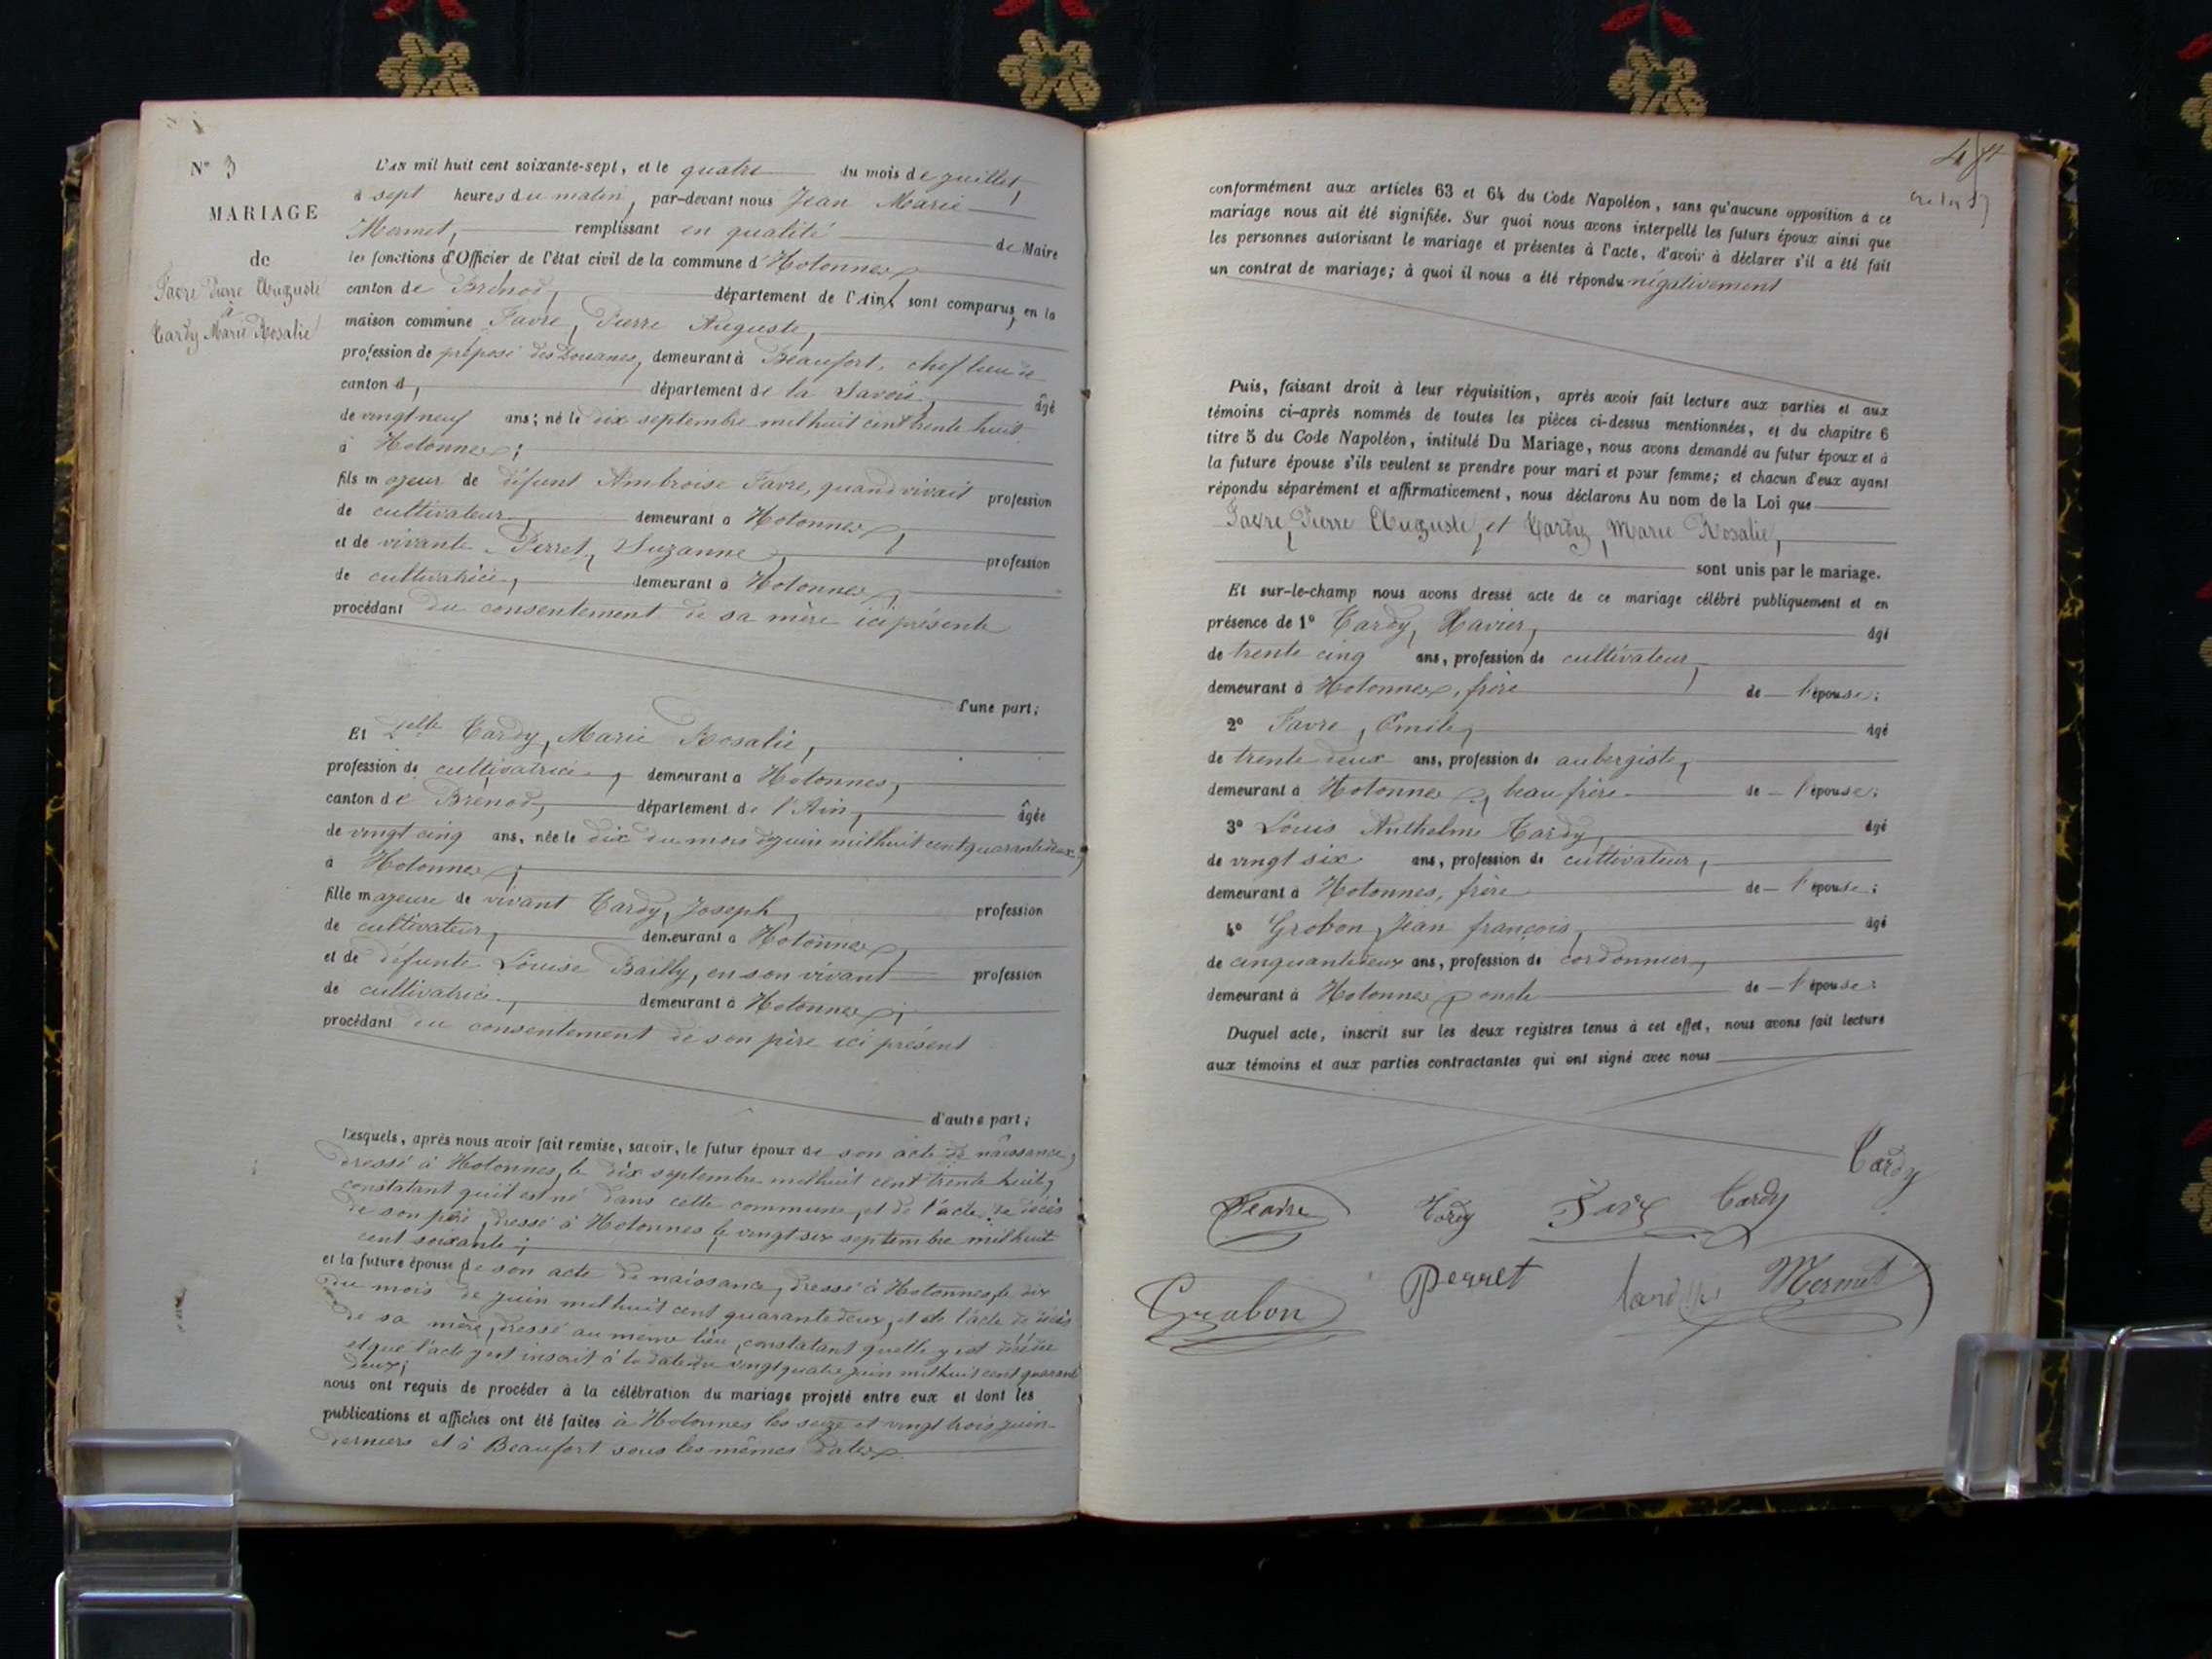 N° 3
MARIAGE
de
Favre Pierre Auguste
à
Tardy Marie Rosalie
L'AN mil huit cent soixante-sept, et le quatre du mois de juillet,
à sept heures du matin, par-devant nous Jean Marie
Mermet, remplissant en qualité de Maire
les fonctions d'Officier de l'état civil de la commune d'Hotonnes,
canton de Brénod, département de l'Ain, sont comparus, en la
maison commune Favre, Pierre Auguste,
profession de préposé des Douanes, demeurant à Beaufort, chef lieu de
canton d, département de la Savoie, âgé
de vingt neuf ans; né le dix septembre mil huit cent trente huit
à Hotonnes;
fils majeur de défunt Ambroise Favre, quand vivait profession
de cultivateur, demeurant à Hotonnes,
et de vivante Perret, Suzanne, profession
de cultivatrice, demeurant à Hotonnes,
procédant du consentement de sa mère ici présente
d'une part;
Et Delle Tardy, Marie Rosalie,
profession de cultivatrice, demeurant à Hotonnes,
canton de Brénod, département de l'Ain, âgée
de vingt cinq ans, née le dix du mois de juin mil huit cent quarante deux,
à Hotonnes;
fille majeure de vivant Tardy, Joseph, profession
de cultivateur, demeurant à Hotonnes,
et de défunte Louise Bailly, en son vivant profession
de cultivatrice, demeurant à Hotonnes;
procédant du consentement de son père ici présent
d'autre part;
Lesquels, après nous avoir fait remise, savoir, le futur époux de son acte de naissance,
dressé à Hotonnes, le dix septembre mil huit cent trente huit,
constatant qu'il est né dans cette commune, et de l'acte de décès
de son père, dressé à Hotonnes le vingt six septembre mil huit
cent soixante;
et la future épouse de son acte de naissance, dressé à Hotonnes, le dix
du mois de juin mil huit cent quarante deux, et de l'acte de décès
de sa mère, dressé au même lieu, constatant qu'elle y est décédée
et que l'acte y est inscrit à la date du vingt quatre juin mil huit cent quarante
deux;
nous ont requis de procéder à la célébration du mariage projeté entre eux et dont les
publications et affiches ont été faites à Hotonnes les seize et vingt trois juin
derniers et à Beaufort sous les mêmes dates
conformément aux articles 63 et 64 du Code Napoléon, sans qu'aucune opposition à ce
mariage nous ait été signifiée. Sur quoi nous avons interpellé les futurs époux ainsi que
les personnes autorisant le mariage et présentes à l'acte, d'avoir à déclarer s'il a été fait
un contrat de mariage; à quoi il nous a été répondu négativement
Puis, faisant droit à leur réquisition, après avoir fait lecture aux parties et aux
témoins ci-après nommés de toutes les pièces ci-dessus mentionnées, et du chapitre 6
titre 5 du Code Napoléon, intitulé Du Mariage, nous avons demandé au futur époux et à
la future épouse s'ils veulent se prendre pour mari et pour femme; et chacun d'eux ayant
répondu séparément et affirmativement, nous déclarons Au nom de la Loi que
Favre, Pierre Auguste, et Tardy, Marie Rosalie,
sont unis par le mariage.
Et sur-le-champ nous avons dressé acte de ce mariage célébré publiquement et en
présence de 1° Tardy, Xavier, âgé
de trente cinq ans, profession de cultivateur,
demeurant à Hotonnes, frère de l'épouse;
2° Favre, Emile, âgé
de trente deux ans, profession de aubergiste,
demeurant à Hotonnes, beau frère de l'épouse;
3° Louis Anthelme Tardy, âgé
de vingt six ans, profession de cultivateur,
demeurant à Hotonnes, frère de l'épouse;
4° Grobon, Jean françois, âgé
de cinquante deux ans, profession de cordonnier,
demeurant à Hotonnes, oncle de l'épouse:
Duquel acte, inscrit sur les deux registres tenus à cet effet, nous avons fait lecture
aux témoins et aux parties contractantes qui ont signé avec nous
Tardy
Favre Tardy Favre Tardy
Grobon Perret Mermet